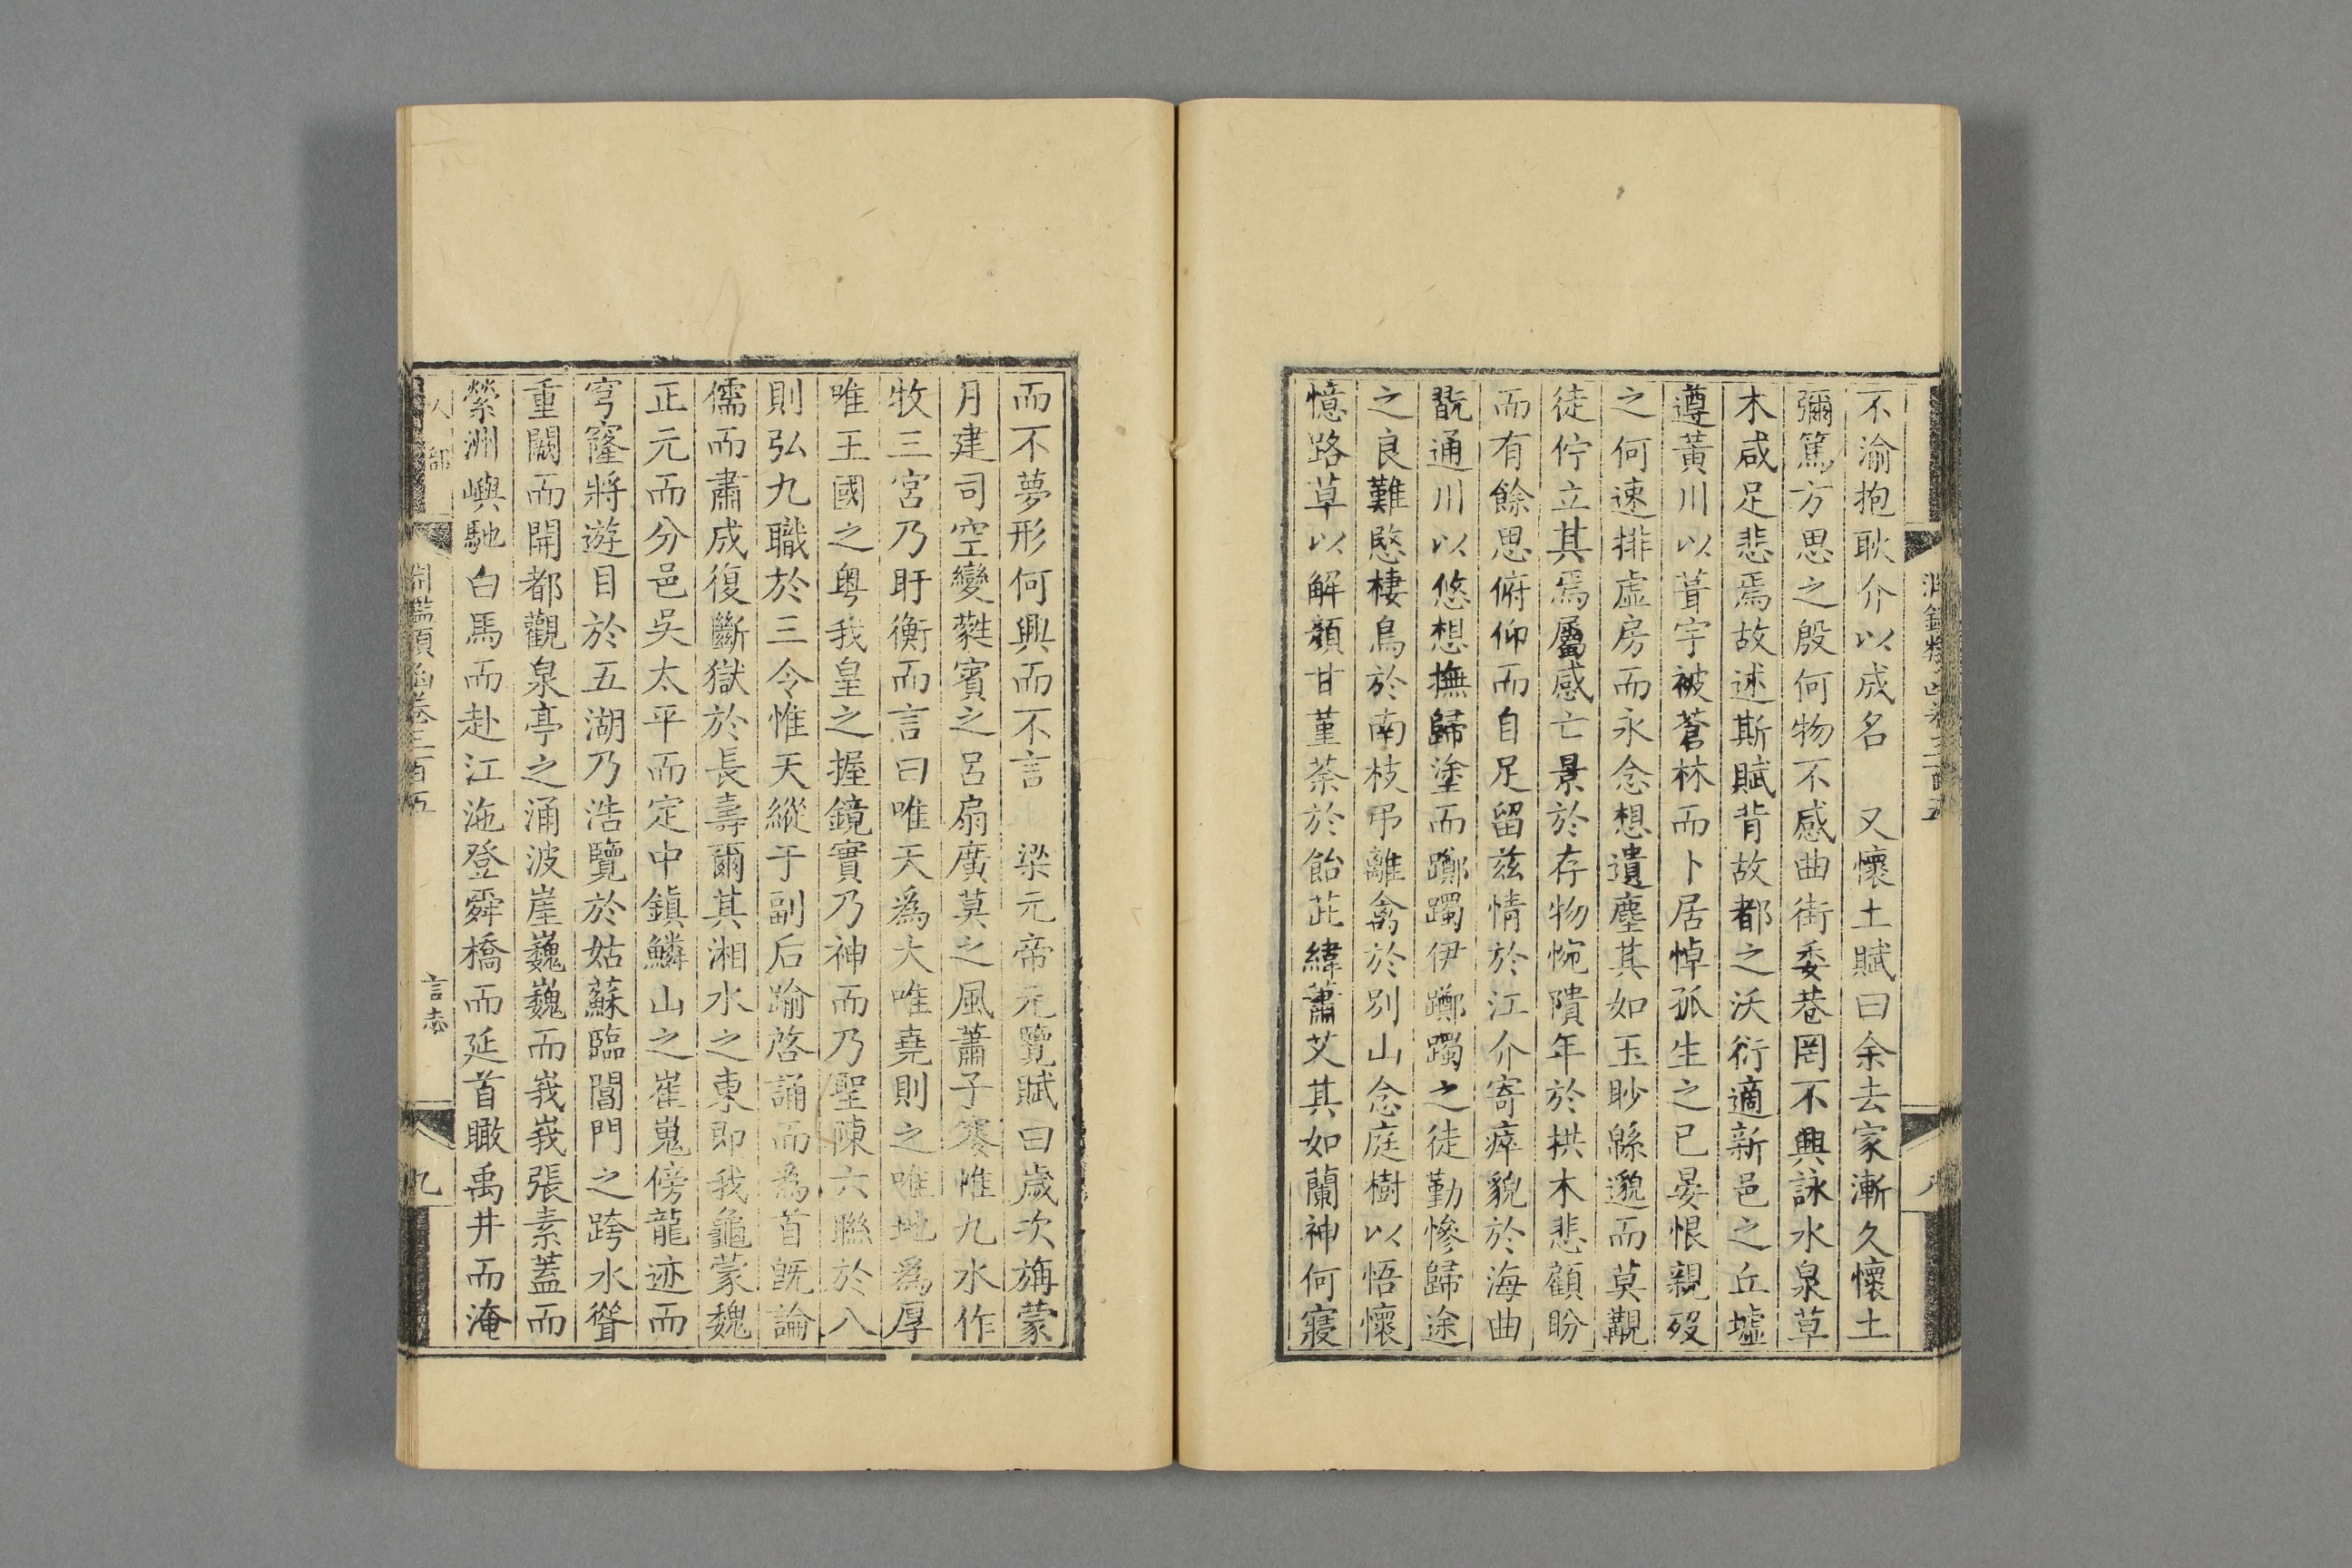 不渝抱耿介以成名　又懷土賦曰余去家漸久懷土
彌篤方思之殷何物不感曲街委巷罔不興詠水泉草
木咸足悲焉故述斯賦背故都之沃衍適新邑之丘墟
遵黃川以葺宇被蒼林而卜居悼孤生之已晏恨親歿
之何速排虛房而永念想遺塵其如玉眇緜邈而莫覯
徒佇立其焉屬感亡景於存物惋隤年於拱木悲顧盼
而有餘思俯仰而自足留茲情於江介寄瘁貌於海曲
翫通川以悠想撫歸塗而躑躅伊躑躅之徒勤慘歸途
之良難愍棲鳥於南枝弔離禽於別山念庭樹以悟懷
憶路草以解顏甘堇荼於飴芘緯蕭艾其如蘭神何寢
而不夢形何興而不言　梁元帝元覽賦曰歲次旃蒙
月建司空變蕤賓之呂扇廣莫之風蕭子褰帷九水作
牧三宮乃盱衡而言曰唯天為大唯堯則之唯地為厚
唯王國之粵我皇之握鏡實乃神而乃聖陳六聯於八
則弘九職於三令惟天縱于副后踰啓誦而為首既論
儒而肅成復斷獄於長壽爾其湘水之東即我龜蒙魏
正元而分邑吳太平而定中鎮鱗山之崔嵬傍龍迹而
穹窿將遊目於五湖乃浩覽於姑蘇臨閶門之跨水聳
重闕而開都觀泉亭之涌波崖巍巍而峩峩張素蓋而
縈洲嶼馳白馬而赴江沲登舜橋而延首瞰禹井而淹
人部
淵鑑類函卷三百五
言志
九